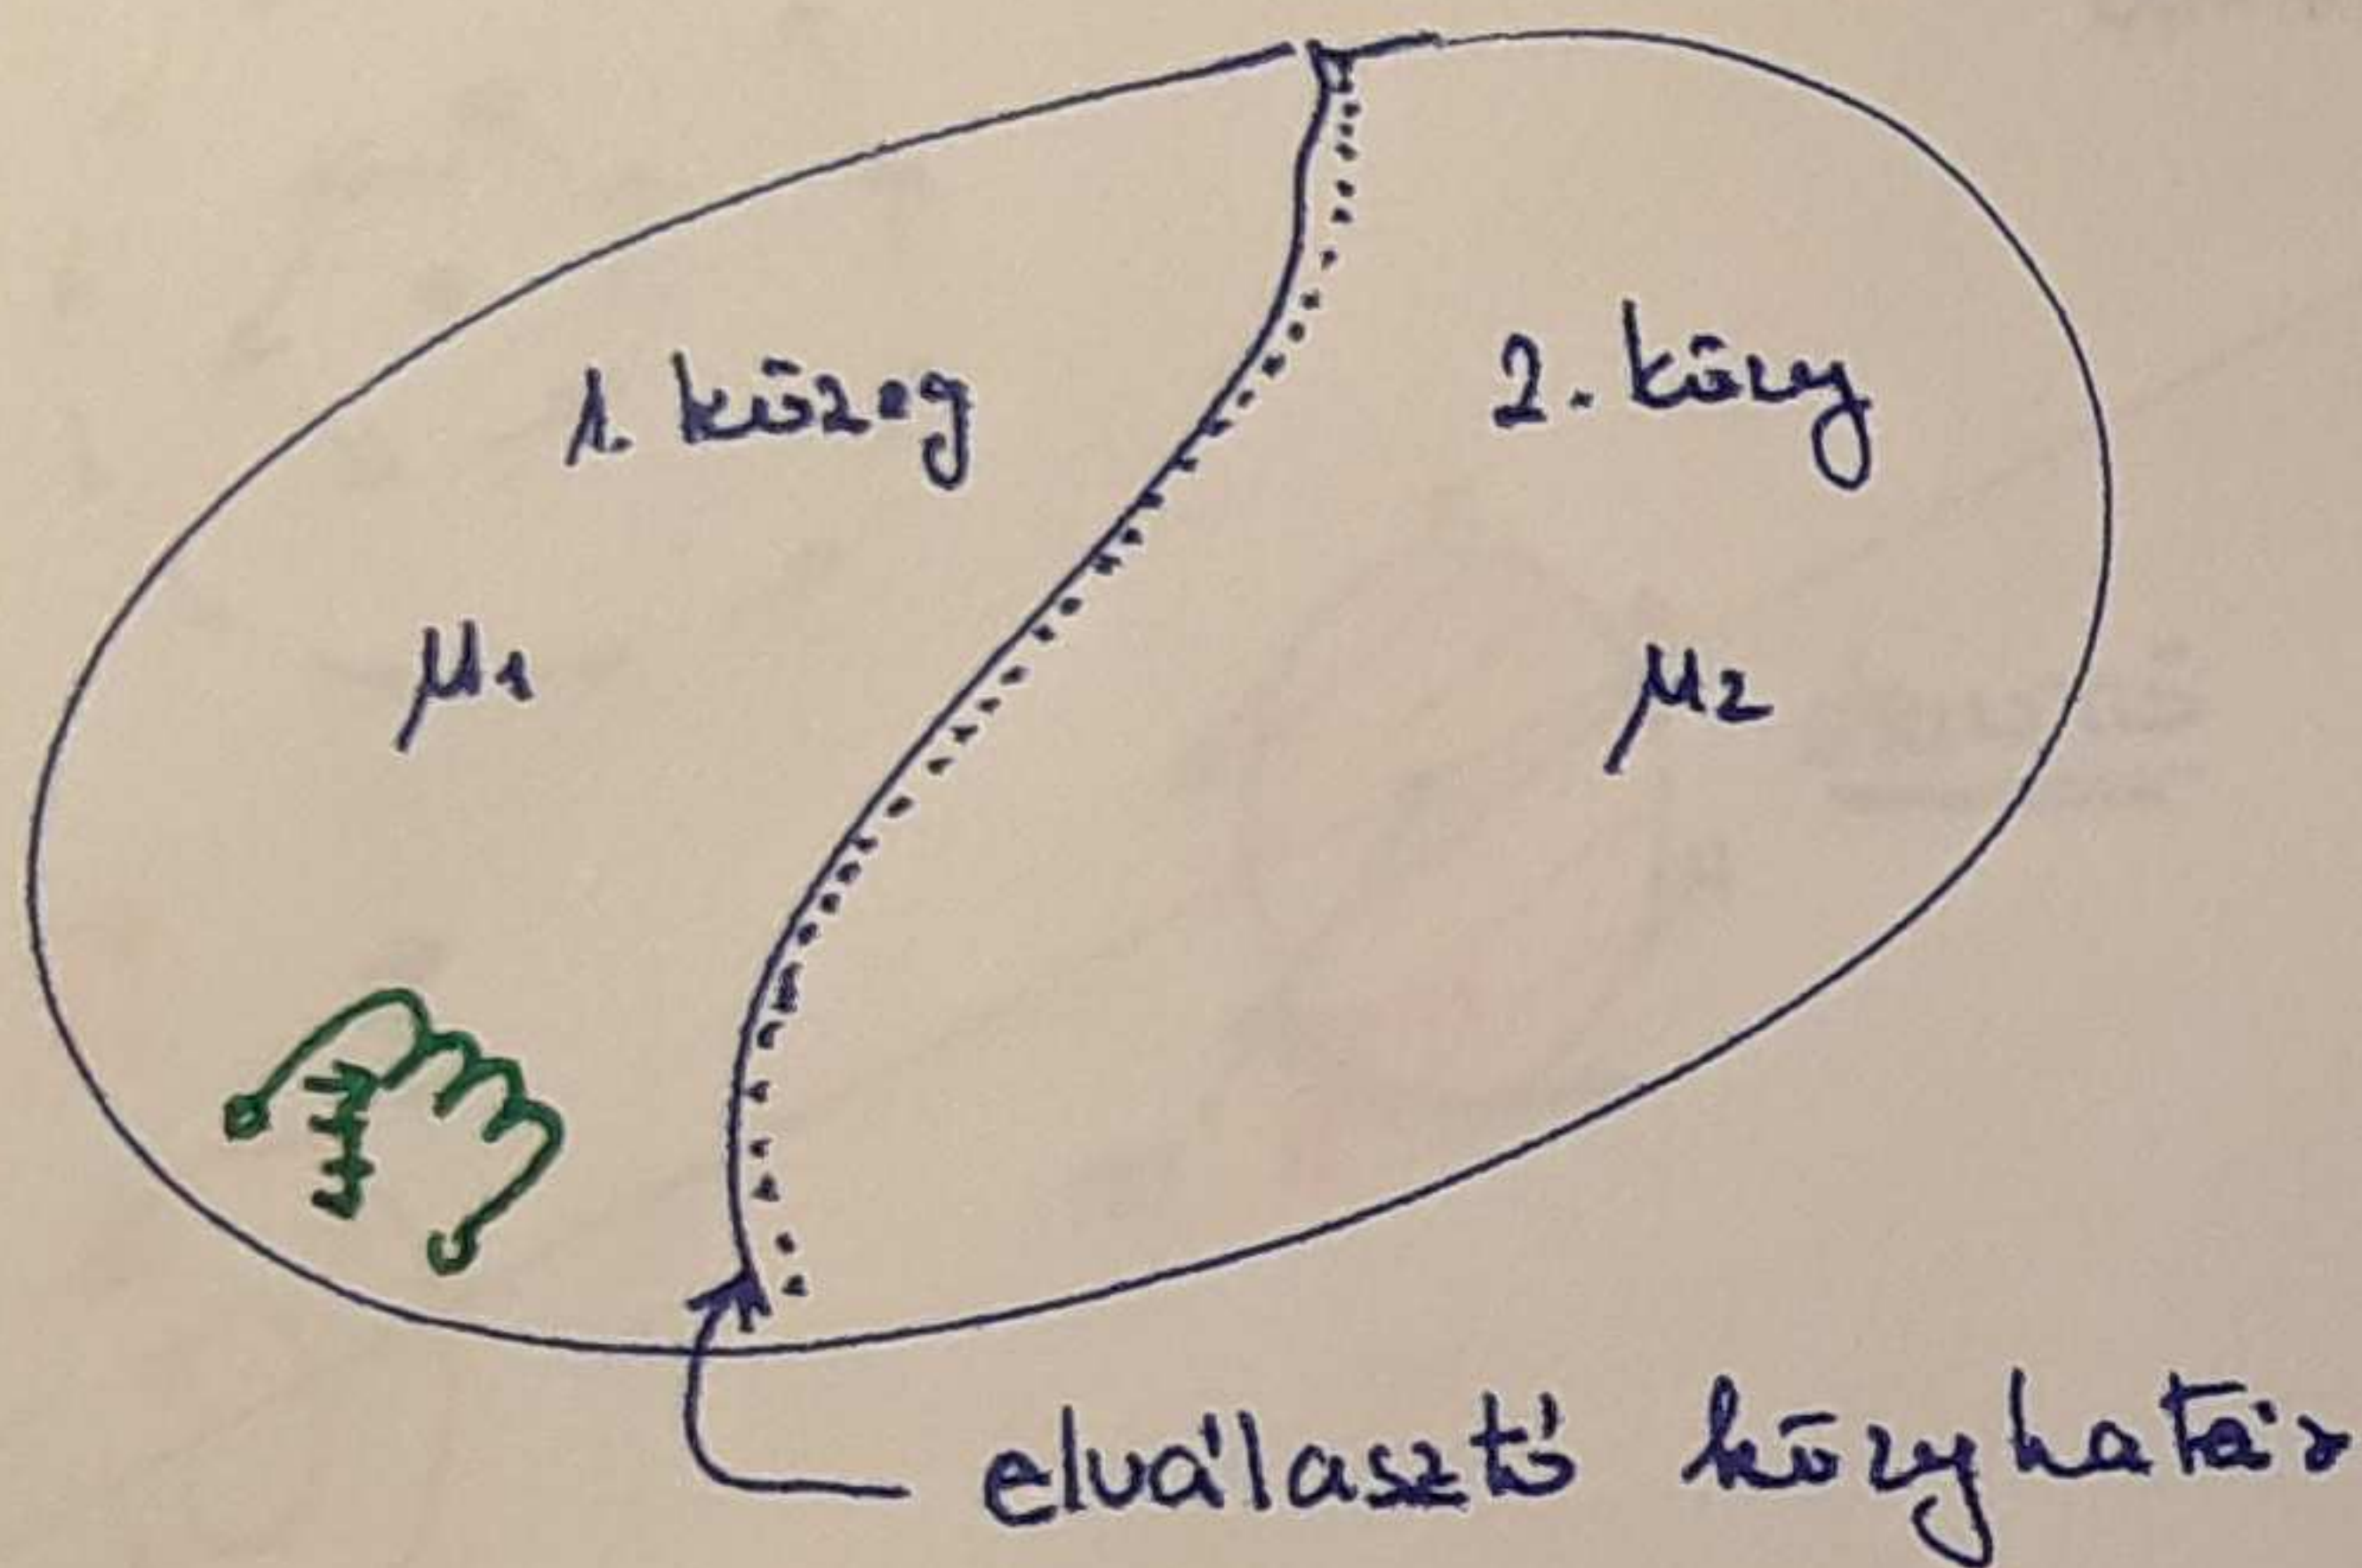 1. közeg
2. közeg
μ1
μ2
elválasztó közeghatár